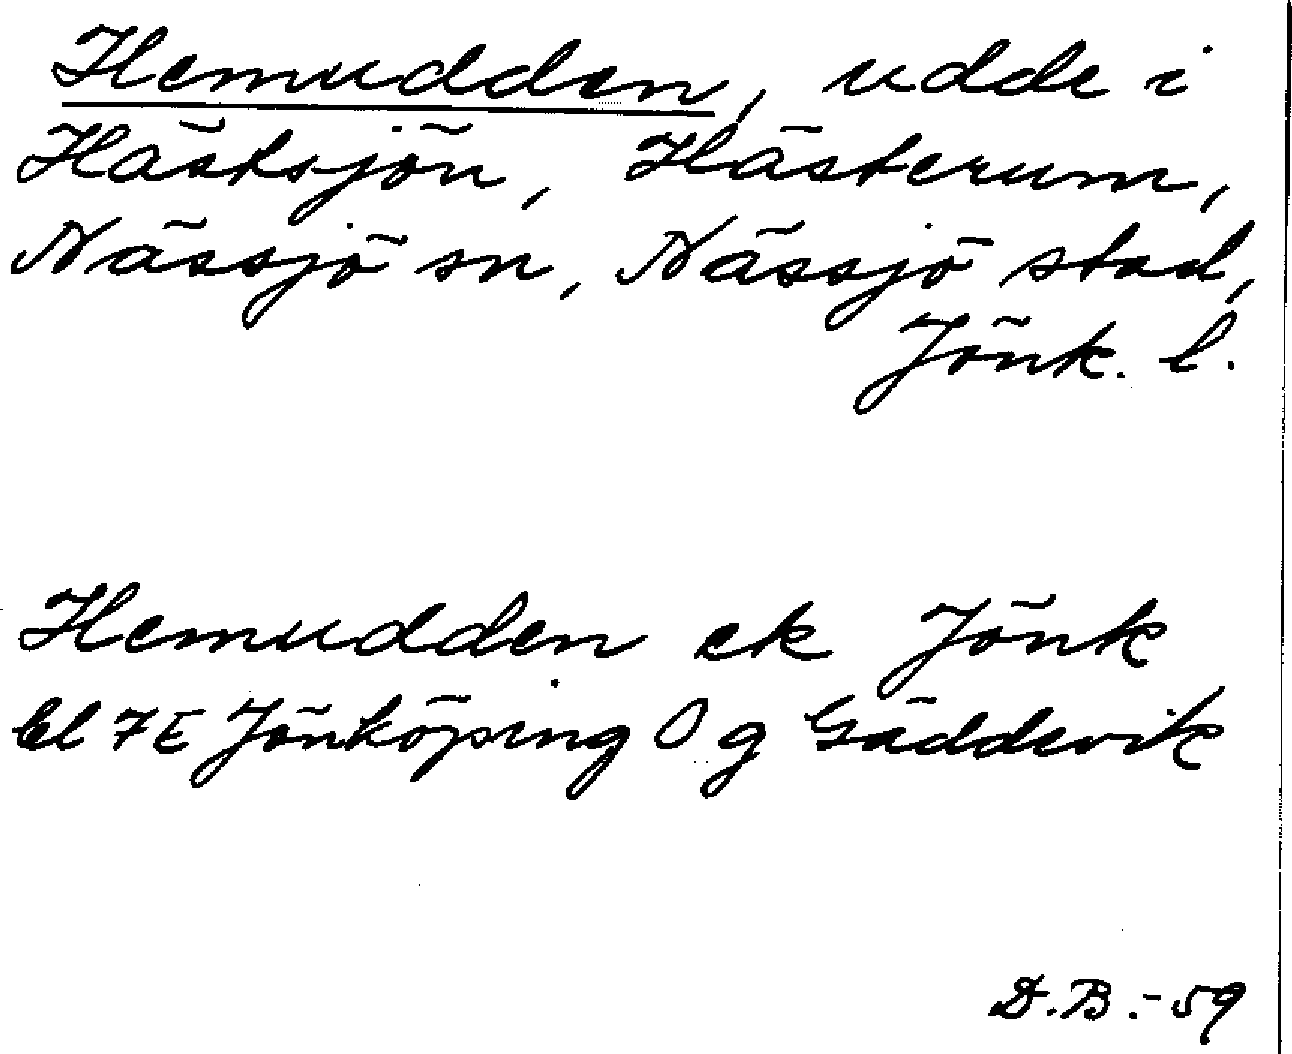 Hemudden, udde i
Hästsjön, Hästerum,
Nässjö sn, Nässjö stad,
Jönk. l.
Hemudden ek Jönk
bl 7E Jönköping O g Gäddevik
D.B.-59